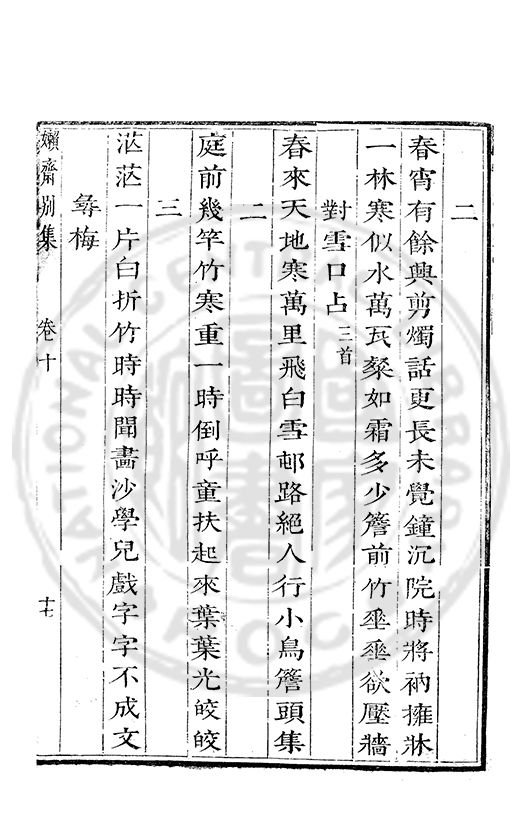 二
春宵有餘興剪燭話更長未覺鐘沉院時將衲擁牀
一林寒似水萬瓦粲如霜多少簷前竹垂垂欲壓牆
對雪口占三首
春來天地寒萬里飛白雪邨路絕人行小鳥簷頭集
二
庭前幾竿竹寒重一時倒呼童扶起來葉葉光皎皎
三
茫茫一片白折竹時時聞畵沙學兒戲字字不成文
尋梅
嬾齋别集
卷十
十七